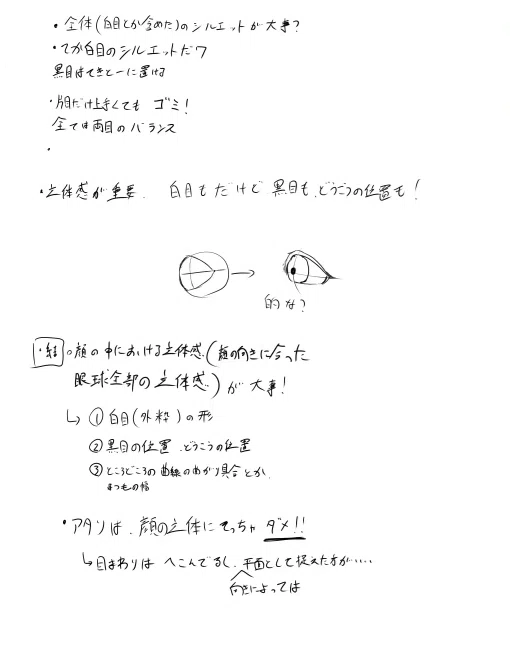 ・全体(白目とか含めた)のシルエットが大事?
・てか白目のシルエットだワ
黒目はてきとーに置ける
・片目だけ上手くても ゴミ!
全ては両目のバランス
・
・立体感が重要. 白目もだけど 黒目も、どうこうの位置も!
的な?
・結 ○顔の中における立体感(顔の向きに合った
眼球全部の立体感)が大事!
↳ ① 白目(外枠)の形
② 黒目の位置、どうこうの位置
③ ところどころの曲線のまがり具合とか
まつもの幅
・アタリは、顔の立体にそっちゃ ダメ!!
↳目まわりは へこんでるし、平面として捉えた方が‥‥
向きによっては